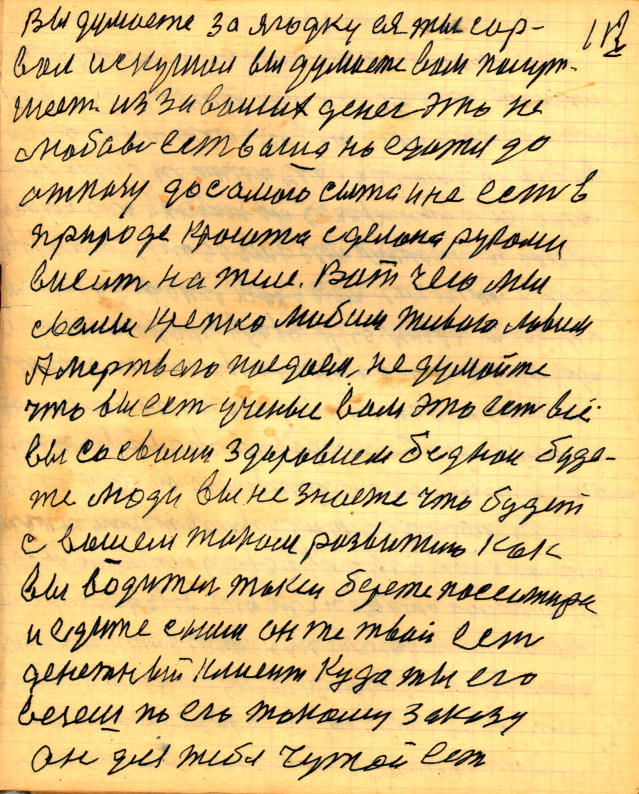 Вы думаете за ягодку ея ты сор- 112
вал и скушал вы думаете вам
из за ваших денег это не
любовь есть ваша но едите до
отказу до самого сыта и не есть в
природе Красота сделана руками
висит на теле. Вот чего мы
с вами крепко любим живого ловим
А мертвого поедаем, не думайте
что вы есть ученые вам это есть все
вы со своим здоровием бедном буде-
те люди вы не знаете что будет
с вашем таком развитии как
вы водител такси берете пассажира
и едите с ним он же твой есть
денежный клиент Куда ты его
везеш по его такому заказу
он для тебя чужой есть